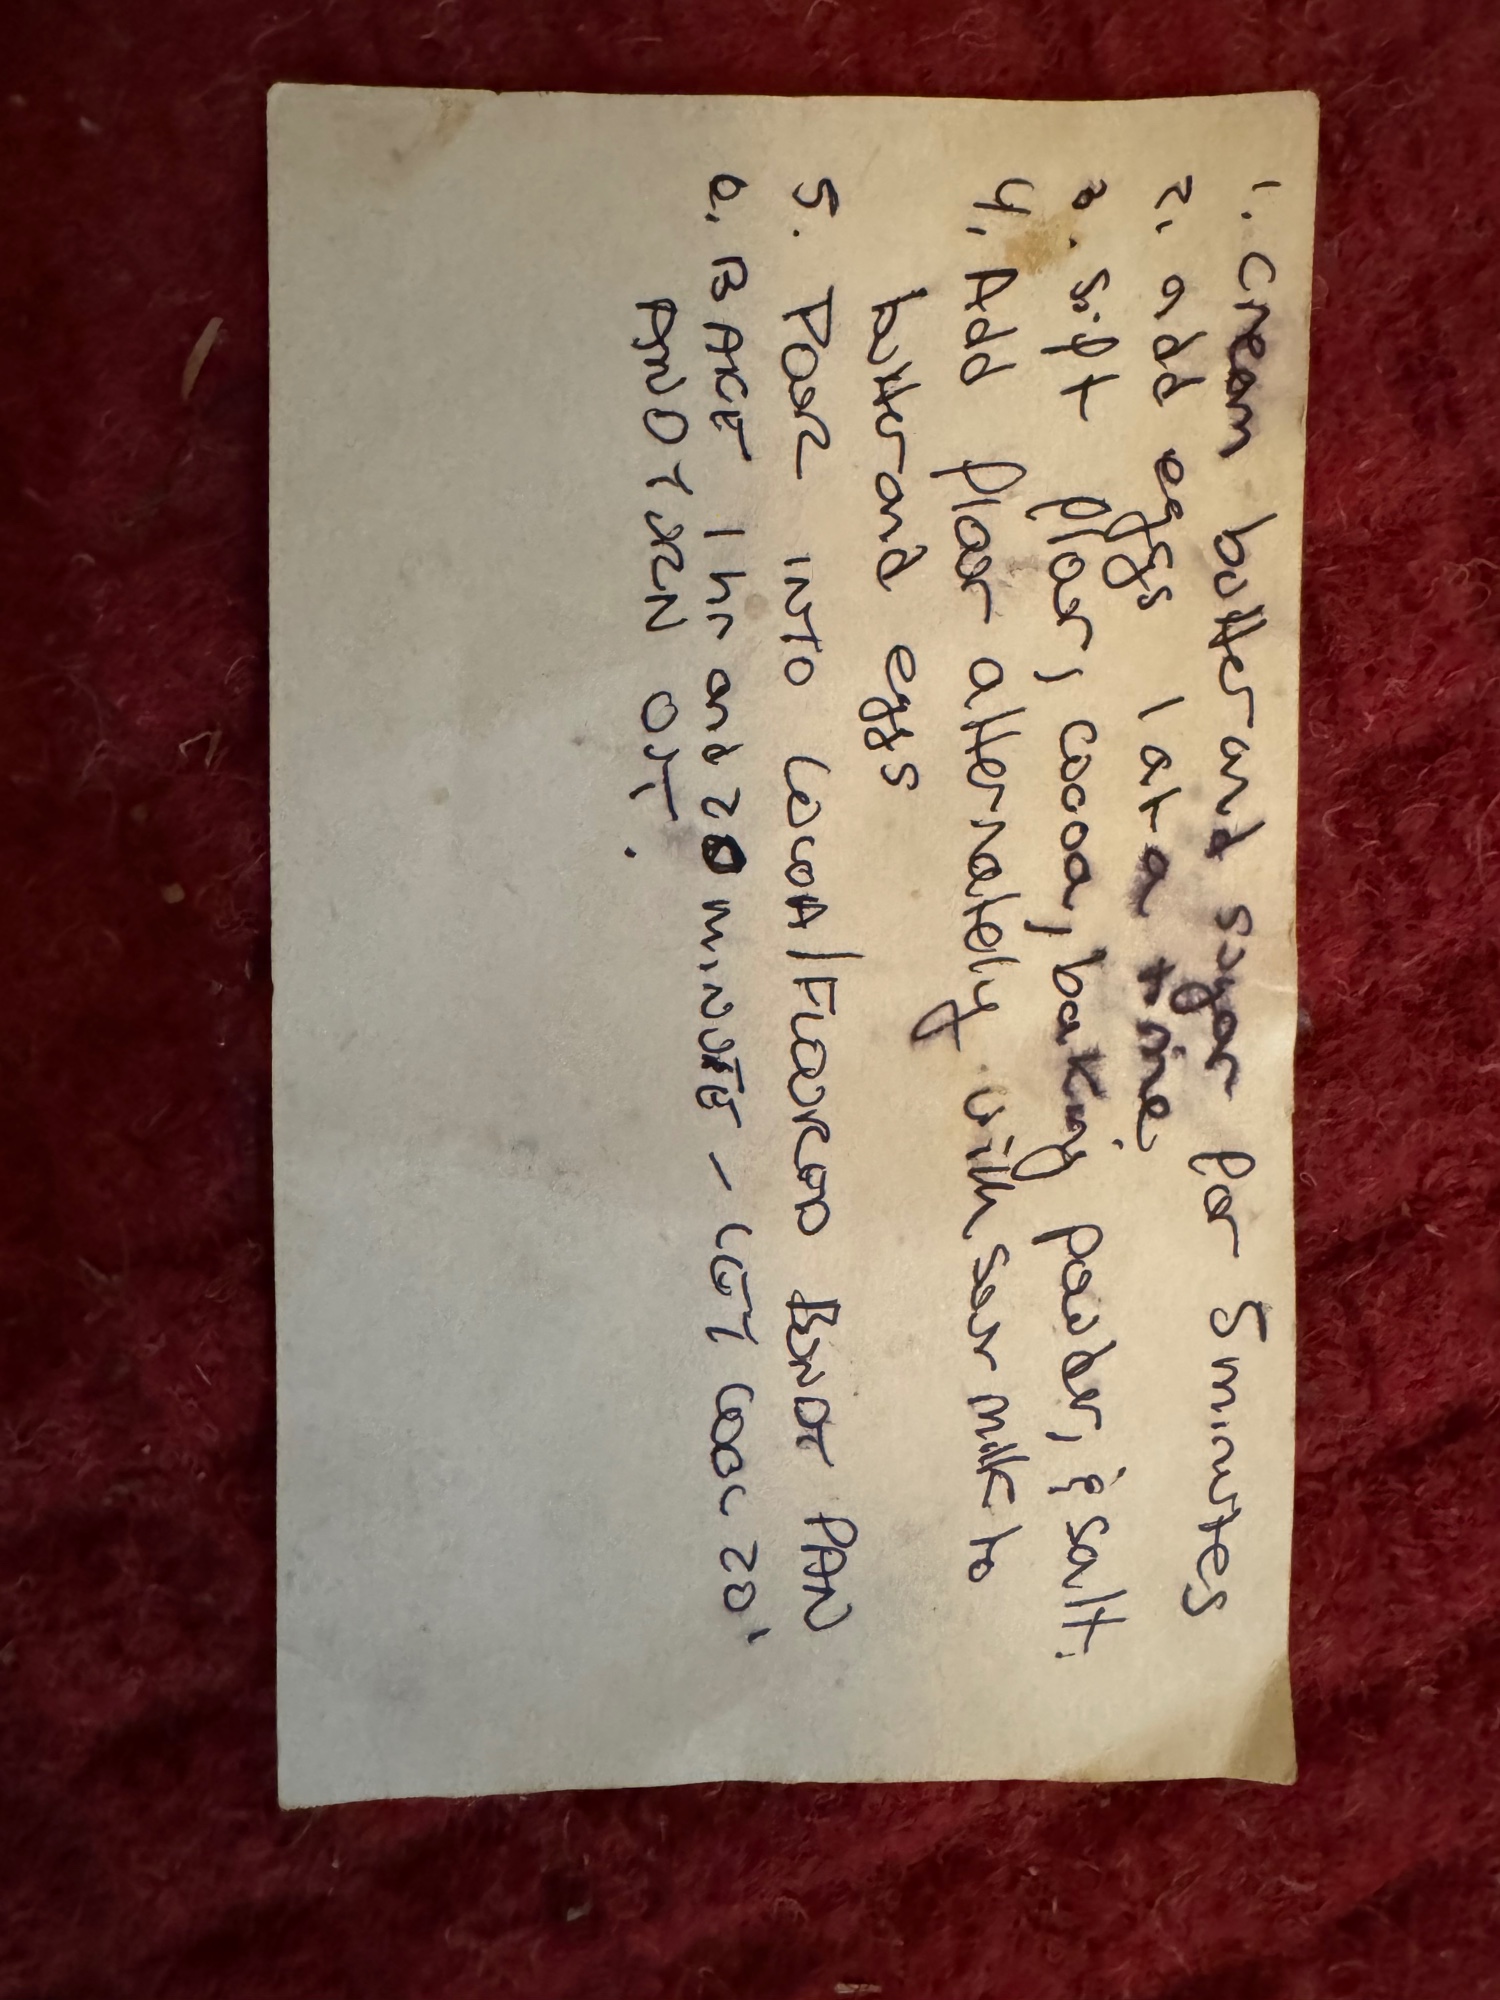 1. Cream butter and sugar for 5 minutes
2. add eggs 1 at a time
3. Sift flour, cocoa, baking powder, & salt.
4. Add flour alternately with sour milk to
butter and eggs
5. POUR INTO COCOA/FLOURED BUNDT PAN
6. BAKE 1 hr and 20 MINUTE - LET COOL 20'
AND TURN OUT.